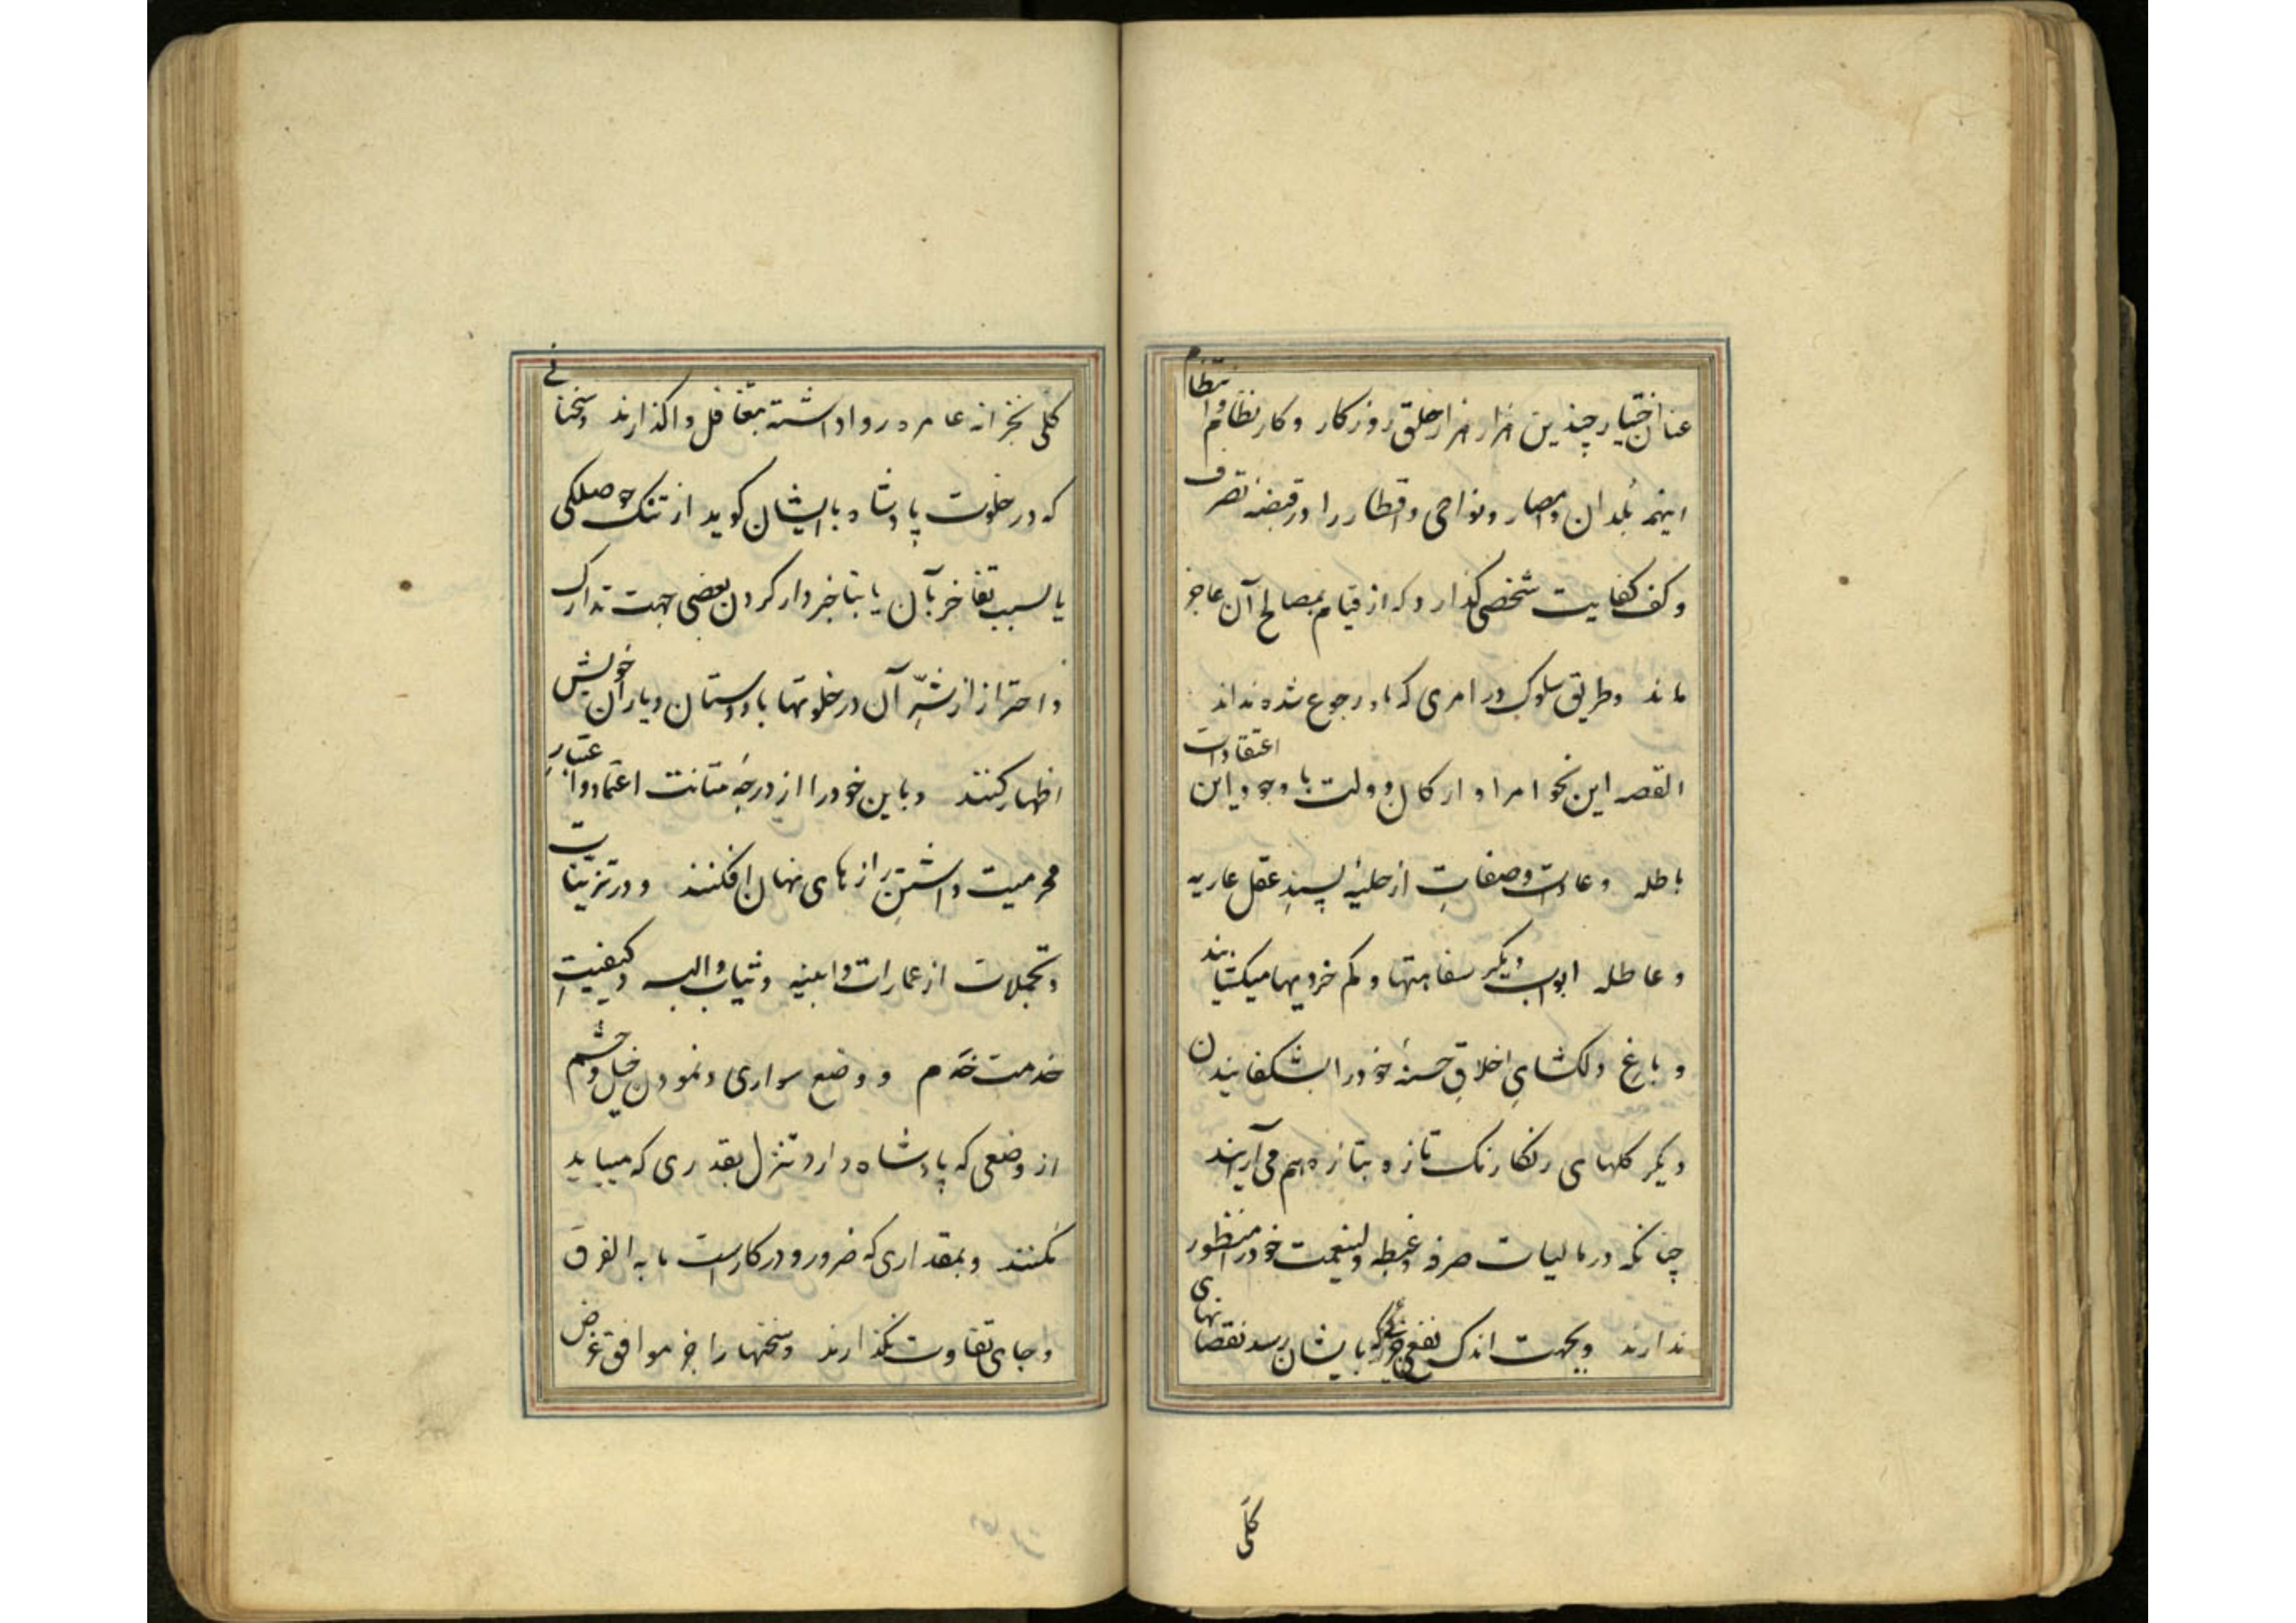 عنان اختیار چندین هزار هزار خلق روزکار و کار نظام و انتظام
اینهمه بلدان و امصار و نواحی و اقطار را در قبضه تصرف
و کف کفایت شخصی کذارد که از قیام بمصالح آن عاجز
ماند و طریق سلوک در امری که باو رجوع شده نداند
القصه این نحو امرا و ارکان دولت با وجود این اعتقادات
باطله و عادات و صفات از حلیهٔ پسندِ عقل عاریه
و عاطله ابواب دیکر سفاهتها و کم خردیها میکشایند
و باغِ دلکشایِ اخلاقِ حسنهٔ خود را بشکفانیدن
دیکر کلهای رنکارنک تازه بتازه هم می آرایند
چنانکه در مالیات صرفه و غبطه ولینعمت خود را منظور
ندارند و بجهت اندک نفعی جزئی که بایشان رسد نقصانهای
کلّی
کلّی بخزانه عامره روا داشته بتغافل واکذارند و سخنانی
که در خلوت پادشاه بایشان کوید از تنک حوصلکی
یا بسبب تفاخر بآن یا بنا خبردار کردن بعضی جهت تدارک
و احتراز از شرّ آن در خلوتها با دوستان و یاران خویش
اظهار کنند و باین خود را از درجهٔ متانت اعتماد و اعتبارِ
محرمیت داشتنِ رازهای نهان افکنند و در تزیینات
و تجملات از عمارات و ابنیه و ثیاب و البسه و کیفیتِ
خدمت خدم و وضع سواری و نمودن خیل و حشم
از وضعی که پادشاه دارد تنزل بقدری که میباید
نکنند و بمقداری که ضرور و در کارست ما به الفرق
و جای تفاوت نکذارند و سخنها را جز موافق غرض